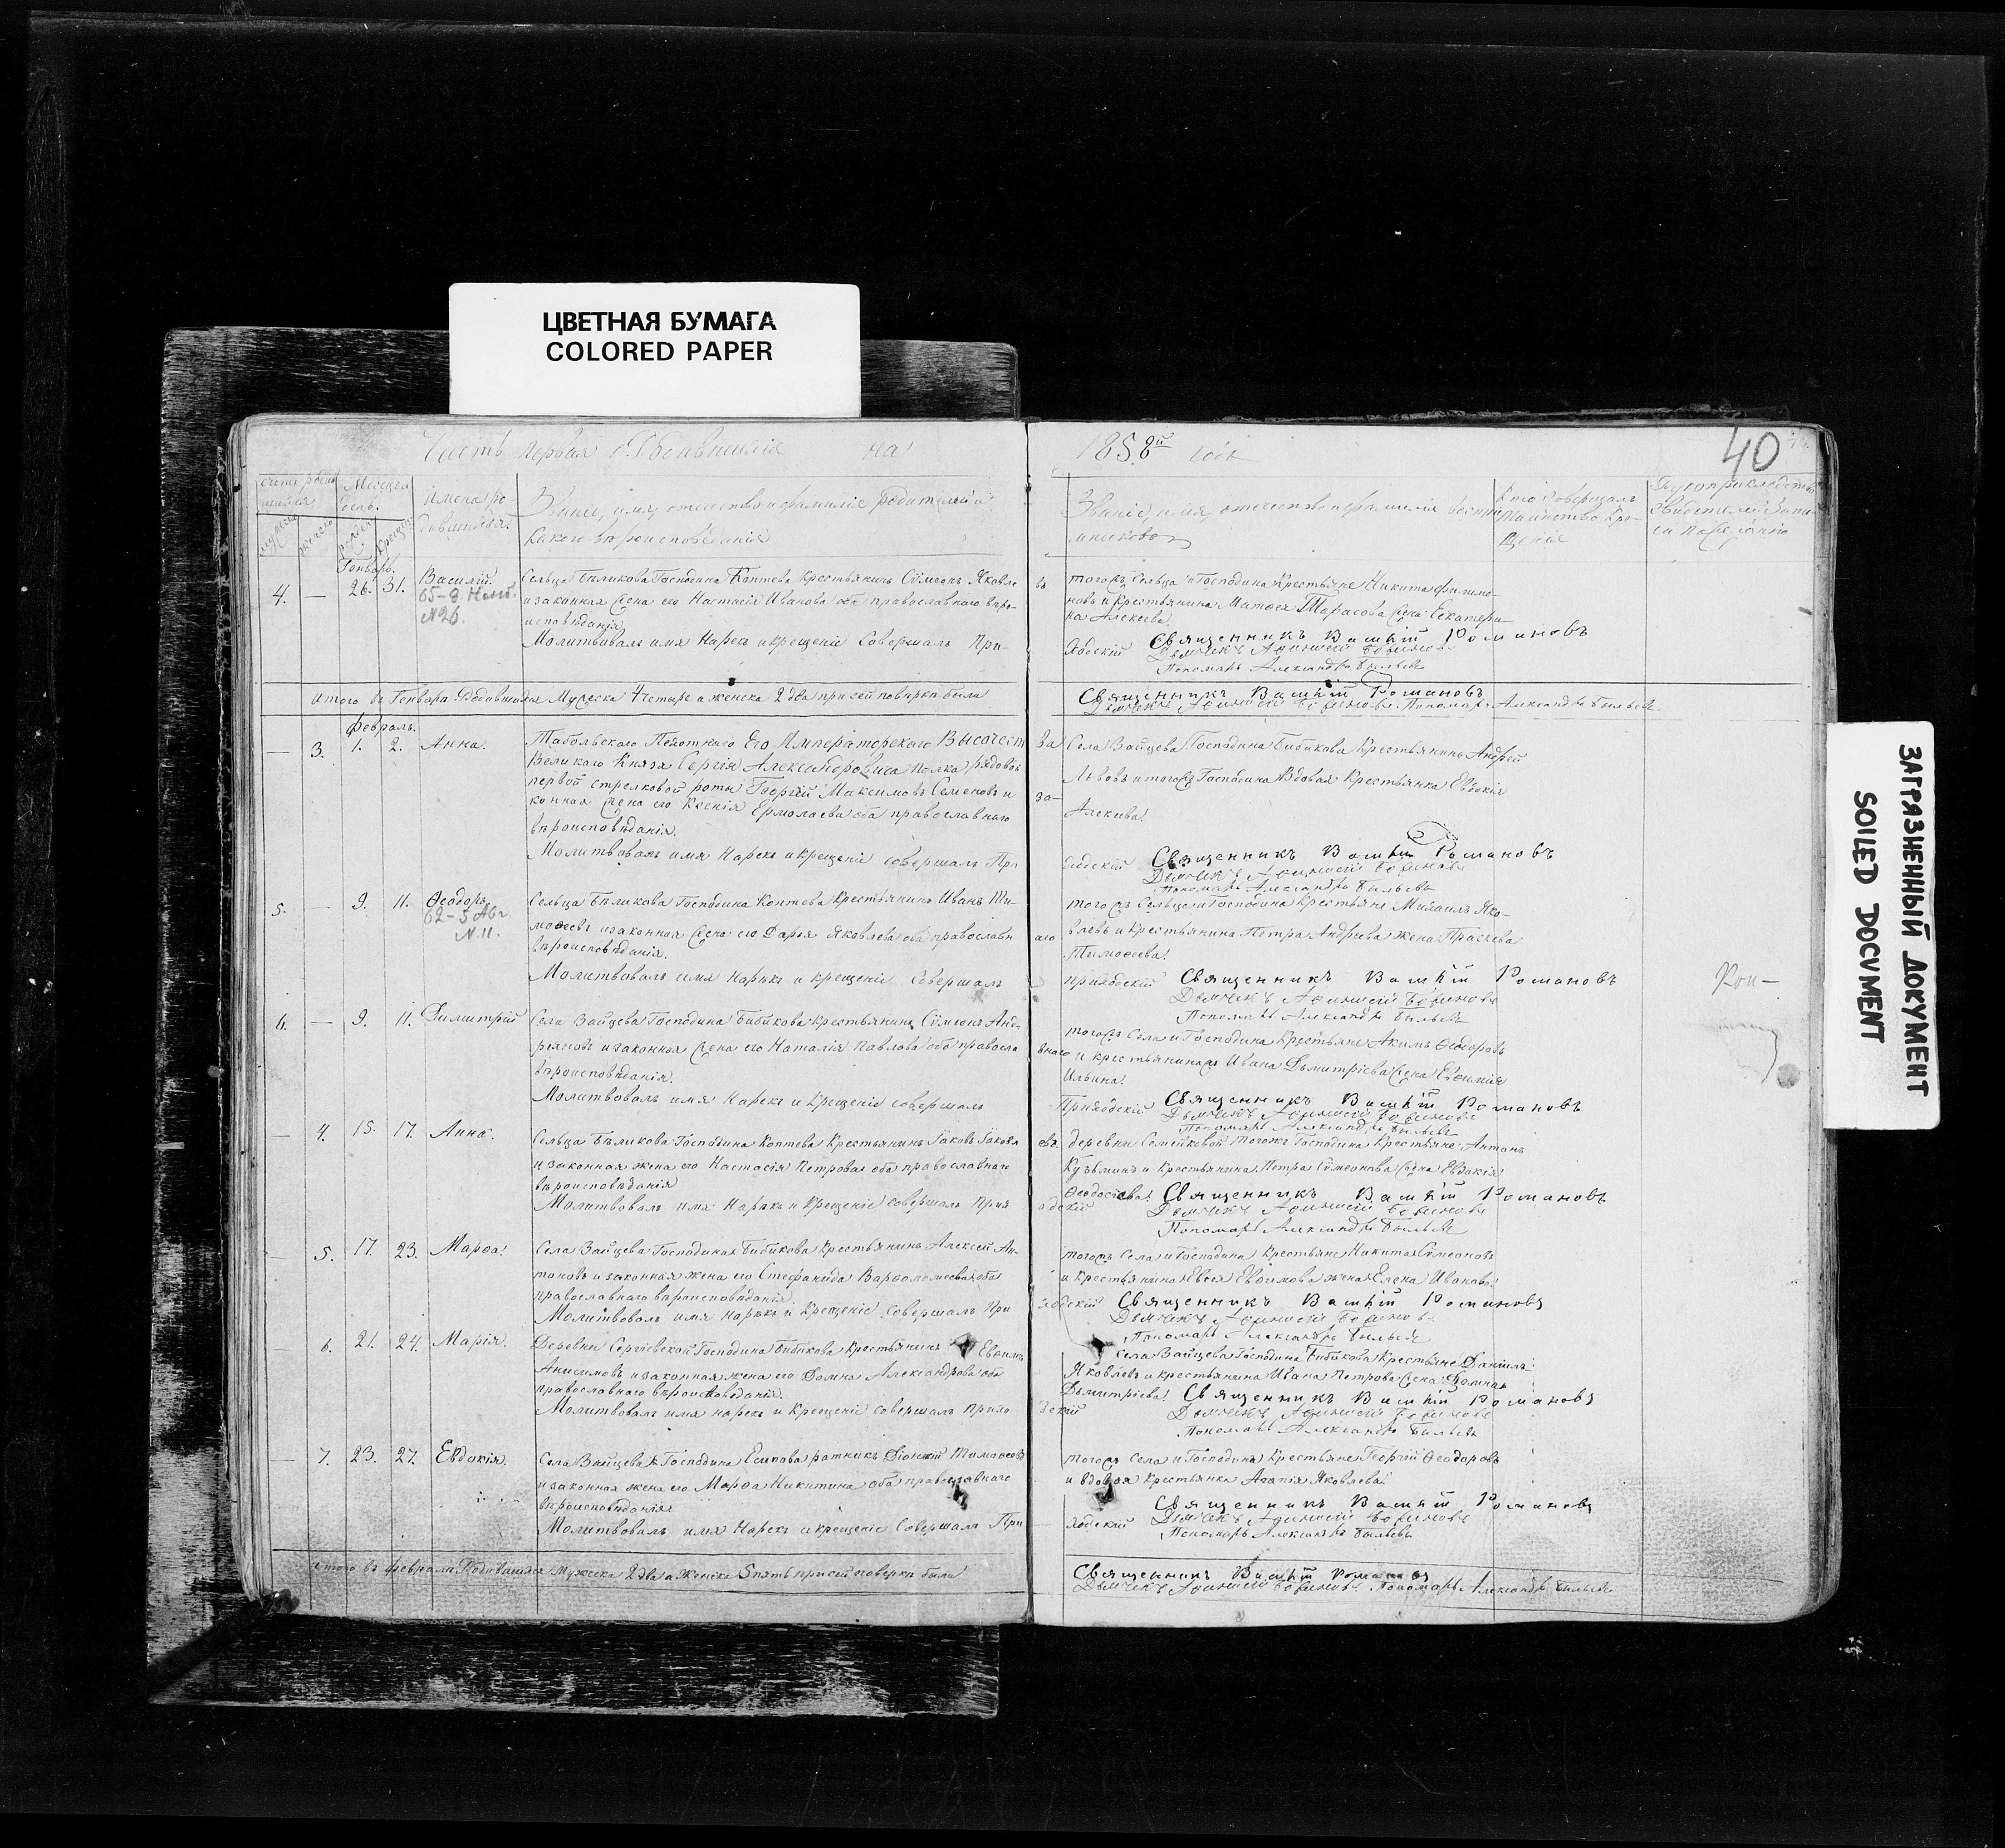 ЦВЕТНАЯ БУМАГА
COLORED PAPER
ЗАГРЯЗНЕННЫЙ ДОКУМЕНТ
SOILED DOCUMENT
Часть первая о Родившихся на
1858й годъ
40
Мѣсяцъ
Имена ро-
дившихся
Званіе, имя, отчество и фамилія родителей и
какого вѣроисповѣданія
Званіе, имя, отчество и фамилія воспріе-
мниковъ
Кто совершалъ
таинство кре-
щенія
Генварь.
4. — 26. 31. Василій.
65-8
№26.
Сельца Бѣликова Господина Коптева Крестьянинъ Сѵмеонъ Яковле
и законная жена его Настасія Иванова оба православнаго вѣро-
исповѣданія
Молитвовалъ имя Нарекъ и крещеніе Совершалъ При-
въ
того жъ Сельца и Господина Крестьяне Никита Филимо-
новъ и Крестьянина Матѳея Тарасова жена Екатери-
на Алексѣева.
ходскій Священникъ Романовъ
Пономарь Александръ
Итого въ Генварѣ Родившихся Мужеска 4 четыре а женска 2 два при сей повѣркѣ были
Священникъ Романовъ
Пономарь Александръ
Февраль.
— 3. 1. 2. Анна.
Тобольскаго Пехотнаго Его Императорскаго Высочест
ва
Великаго Князя Сергія Александровича полка рядовой
первой стрелковой роты Георгій Максимовъ Семеновъ и
за-
конная жена его Ксенія Ермолаева оба православнаго
вѣроисповѣданія.
Молитвовалъ имя Нарекъ и крещеніе совершалъ При
Села Зайцева Господина Бибикова Крестьянинъ Андрей
Львовъ и того жъ Господина Вдовая Крестьянка Евдокія
Алексѣева.
ходскій Священникъ Романовъ
Пономарь Александръ
5. — 9. 11. Ѳеодоръ.
62-5 Авг.
№11.
Сельца Бѣликова Господина Коптева Крестьянинъ Иванъ Ти-
моѳеевъ и законная жена его Дарья Яковлева оба православн
аго
вѣроисповѣданія.
Молитвовалъ имя Нарекъ и крещеніе Совершалъ
того жъ Сельца и Господина Крестьяне Михаилъ Яко-
влевъ и Крестьянина Петра Андреева жена Праскева
Тимоѳеева.
приходскій Священникъ Романовъ
Пономарь Александръ
6. — 9. 11. Димитрій
Села Зайцева Господина Бибикова Крестьянинъ Сѵмеонъ Анд-
реяновъ и законная жена его Наталія Павлова оба правосла
внаго
вѣроисповѣданія.
Молитвовалъ имя Нарекъ и Крещеніе совершалъ
того жъ Села и Господина Крестьяне Акимъ Ѳеодоровъ
и крестьянина Ивана Дьмитріева жена Евфимія
Ильина.
Приходскій Священникъ Романовъ
Пономарь Александръ
— 4. 15. 17. Анна.
Сельца Бѣликова Господина Коптева Крестьянинъ Іаковъ Іаковл
евъ
и законная жена его Настасія Петрова оба православнаго
вѣроисповѣданія
Молитвовалъ имя Нарекъ и Крещеніе совершалъ Прих
деревни Семейковой того жъ Господина Крестьяне Антонъ
Кузьминъ и Крестьянина Петра Сѵмеонова жена Евдокія
Ѳеодосіева. Священникъ Романовъ
одскій
Пономарь Александръ
— 5. 17. 23. Марѳа.
Села Зайцева Господина Бибикова Крестьянинъ Алексей Ан-
тоновъ и законная жена его Стефанида Варѳоломеева оба
православнаго вѣроисповѣданія.
Молитвовалъ имя Нарекъ и Крещеніе совершалъ При
того жъ Села и Господина Крестьяне Никита Сѵмеоновъ
и крестьянина Евсея Евфимова жена Елена Иванова.
ходскій Священникъ Романовъ
Пономарь Александръ
6. 21. 24. Марія.
Деревни Сергіевской Господина Бибикова Крестьянинъ Евфимъ
Анисимовъ и законная жена его Домна Александрова оба
православнаго вѣроисповѣданія.
Молитвовалъ имя нарекъ и Крещеніе совершалъ Прихо
Села Зайцева Господина Бибикова Крестьяне Даніилъ
Яковлевъ и крестьянина Ивана Петрова жена Домна
Дьмитріева. Священникъ Романовъ
дскій
Пономарь Александръ
— 7. 23. 27. Евдокія.
Села Зайцева Господина Есипова ратникъ Тимоѳеевъ
и законная жена его Марѳа Никитина оба православнаго
вѣроисповѣданія
Молитвовалъ имя Нарекъ и крещеніе Совершалъ При
того жъ села и Господина Крестьяне Георгій Ѳеодоровъ
и вдовая Крестьянка Агапія Яковлева
Священникъ Романовъ
ходскій
Пономарь Александръ
Итого въ Февралѣ Родившихся Мужеска 2 два а Женска 5 пять при сей поверкѣ были
Священникъ Романовъ
Пономарь Александръ